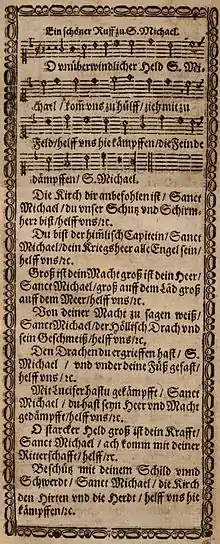 Ein schöner Ruff zu S. Michael.
O vnüberwindlicher Held S. Mi-
chael / kom vns zu hülff / zieh mit zu
Feld / helff vns hie kämpffen / die Feinde
dämpffen / S. Michael.
Die Kirch dir anbefohlen ist / Sanct
Michael / du vnser Schutz vnd Schirm-
herr bist / helff vns / ꝛc.
Du bist der himlisch Capitein / Sanct
Michael / dein Kriegsheer alle Engel sein /
helff vns / ꝛc.
Groß ist dein Macht groß ist dein Heer /
Sanct Michael / groß auff dem Läd groß
auff dem Meer / helff vns / ꝛc.
Von deiner Macht zu sagen weiß /
Sanct Michael / der Höllisch Drach vnd
sein Geschmeiß / helff vns / ꝛc.
Den Drachen du ergrieffen hast / S.
Michael / vnd vnder deine Füß gefast /
helff vns / ꝛc.
Mit Lucifer hastu gekämpfft / Sanct
Michael / du hast seyn Heer vnd Macht
gedämpfft / helff vns / ꝛc.
O starcker Held groß ist dein Krafft /
Sanct Michael / ach komm mit deiner
Ritterschafft / helff / ꝛc.
Beschütz mit deinem Schild vnnd
Schwerdt / Sanct Michael / die Kirch
den Hirten vnd die Herdt / helff vns hie
kämpffen / ꝛc.